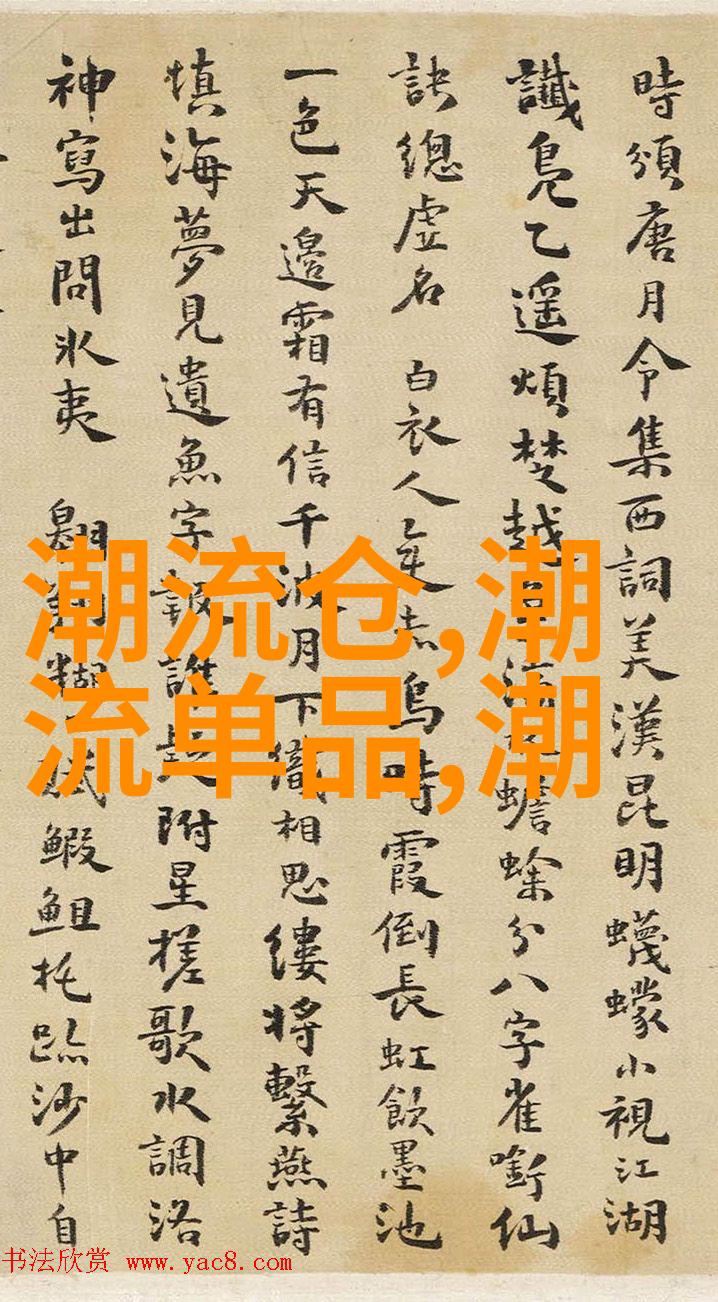 時頒唐月令集西詞美漢昆明蠛蠓小視江湖
讖鳧乙遥煩楚越蟾蜍分八字雀銜仙
訣總虚名 白衣人烏時霞倒長虹飲墨池
一色天邊霜有信千波月下織相思縷將繫燕詩
填海夢見遺魚字報誰附星槎歌水調洛
神寫出問冰夷 翺翔蝦鉏托跡沙中自
潮流仓,潮
流单品,潮
书法欣赏 www.yac8.com